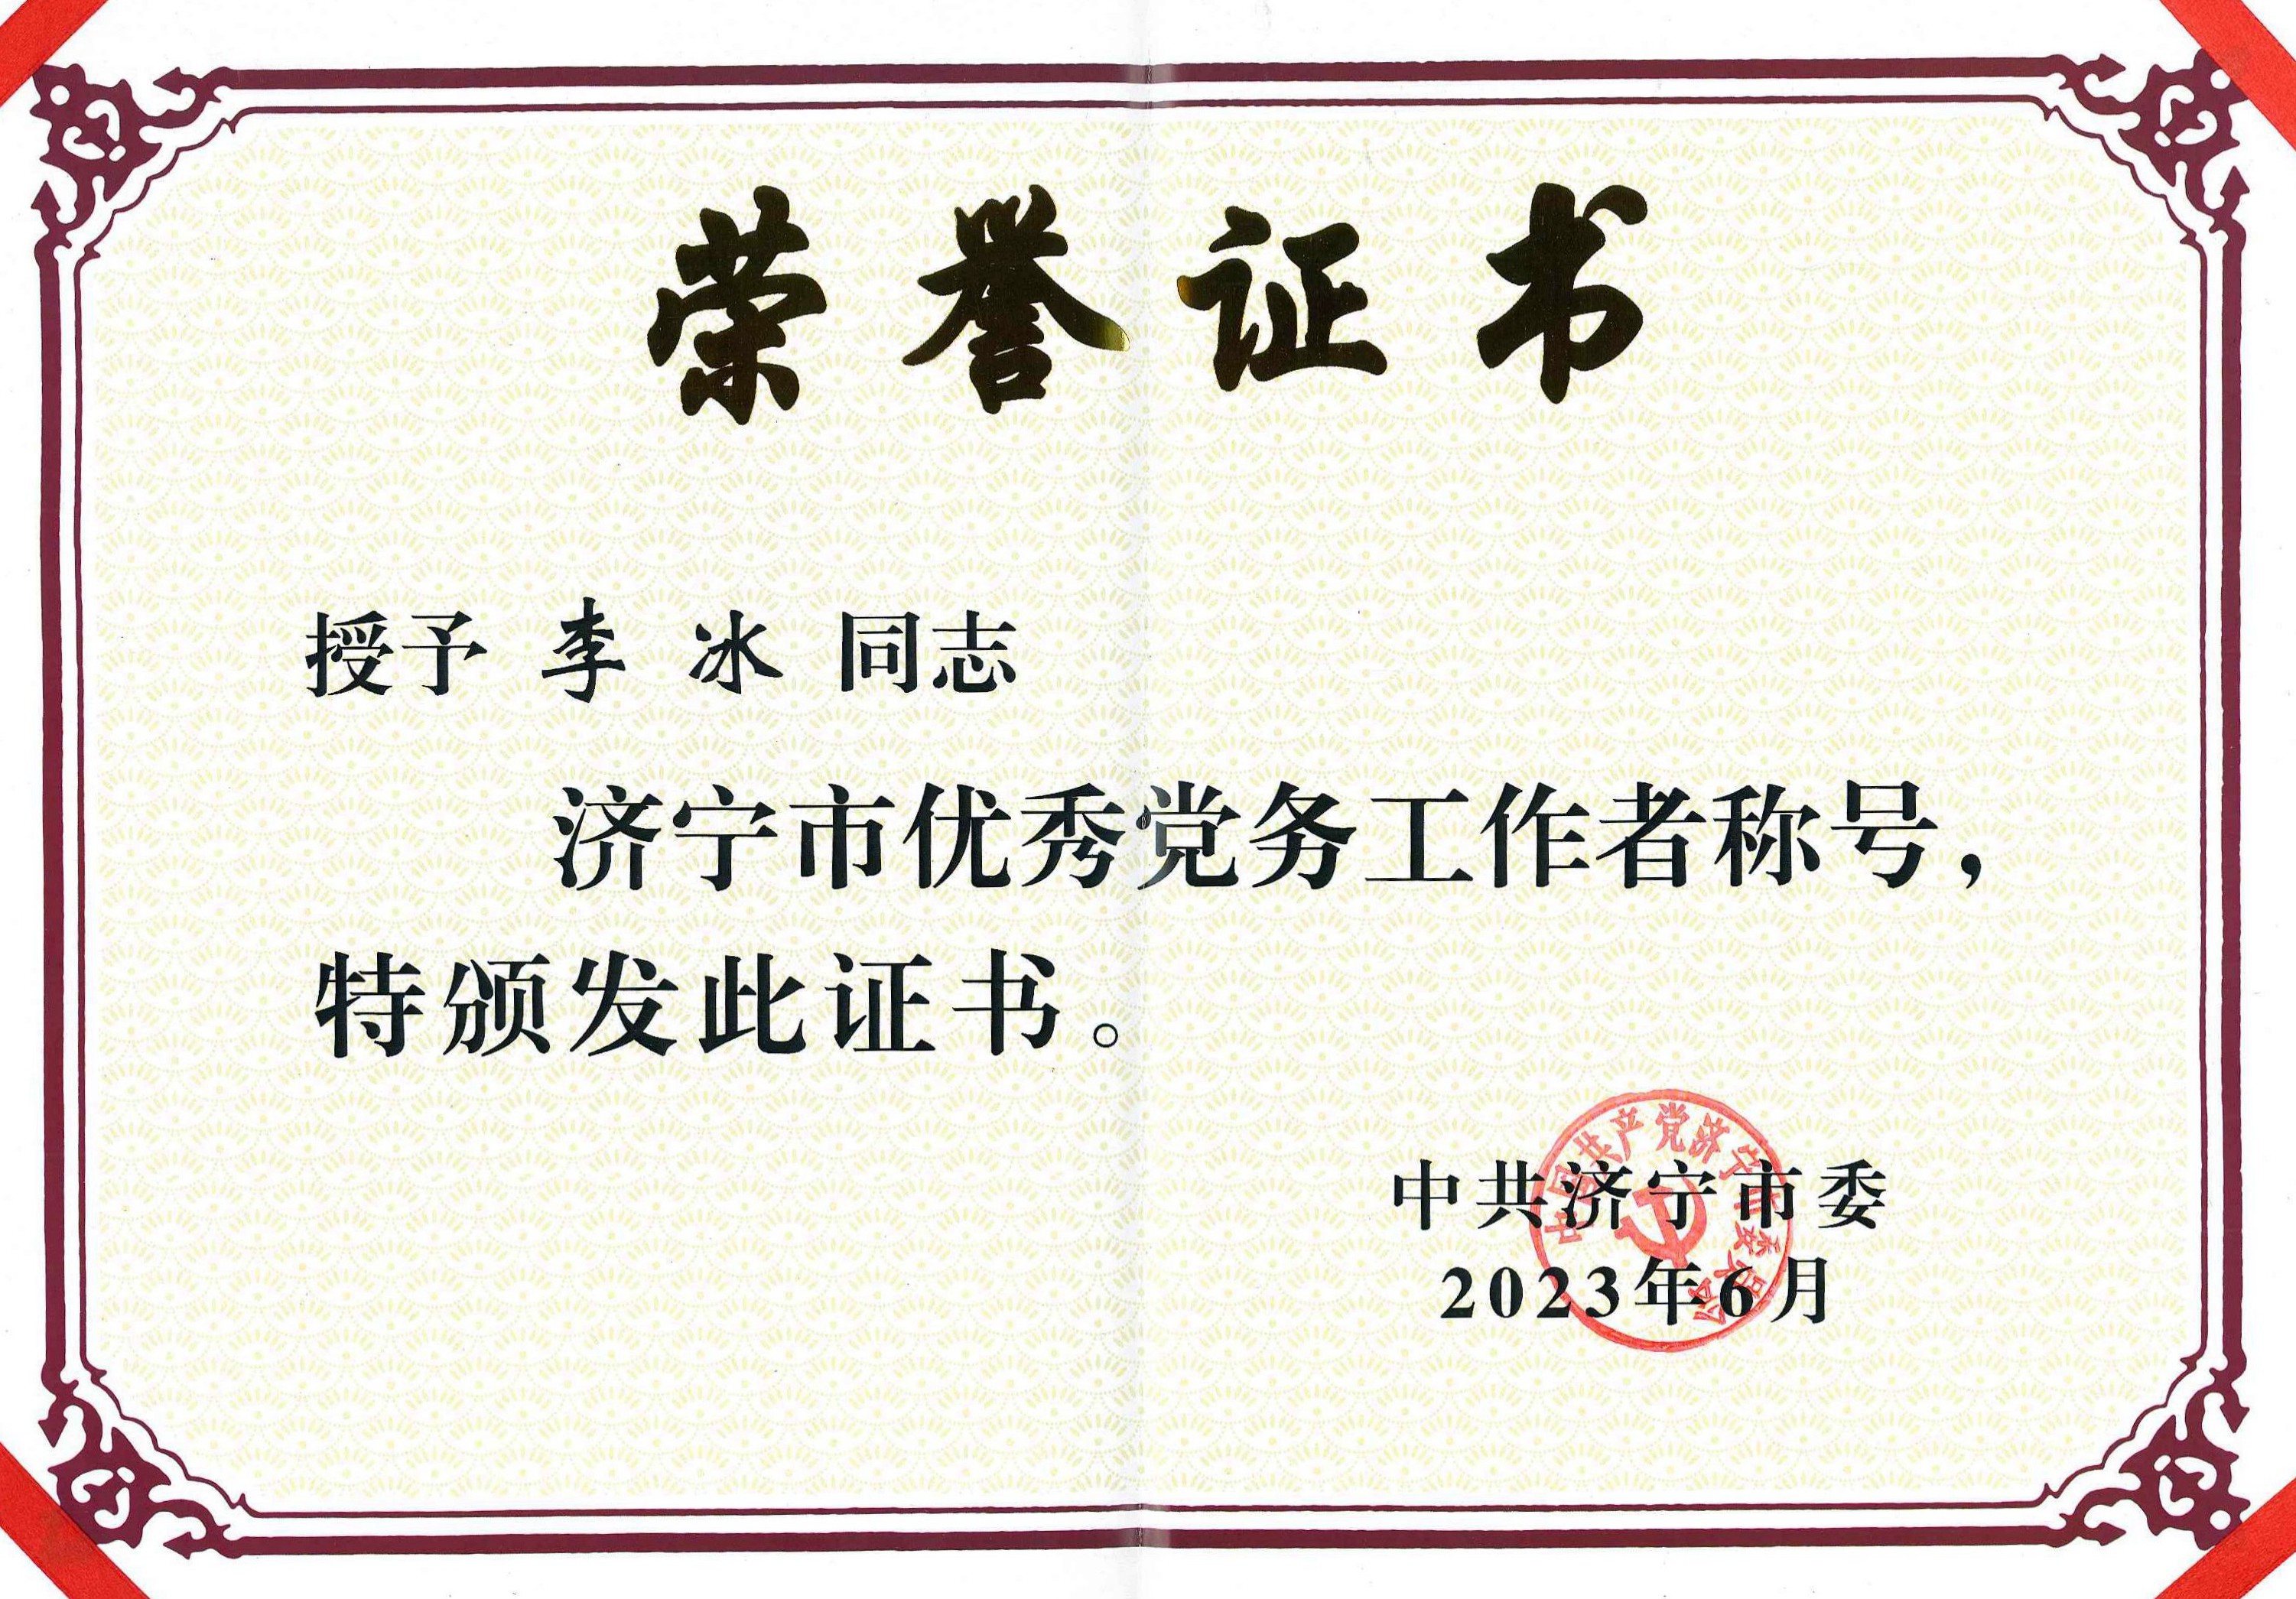 荣誉证书
授予 李冰 同志
济宁市优秀党务工作者称号，
特颁发此证书。
中国共产党济宁市委员会
中共济宁市委
2023年6月